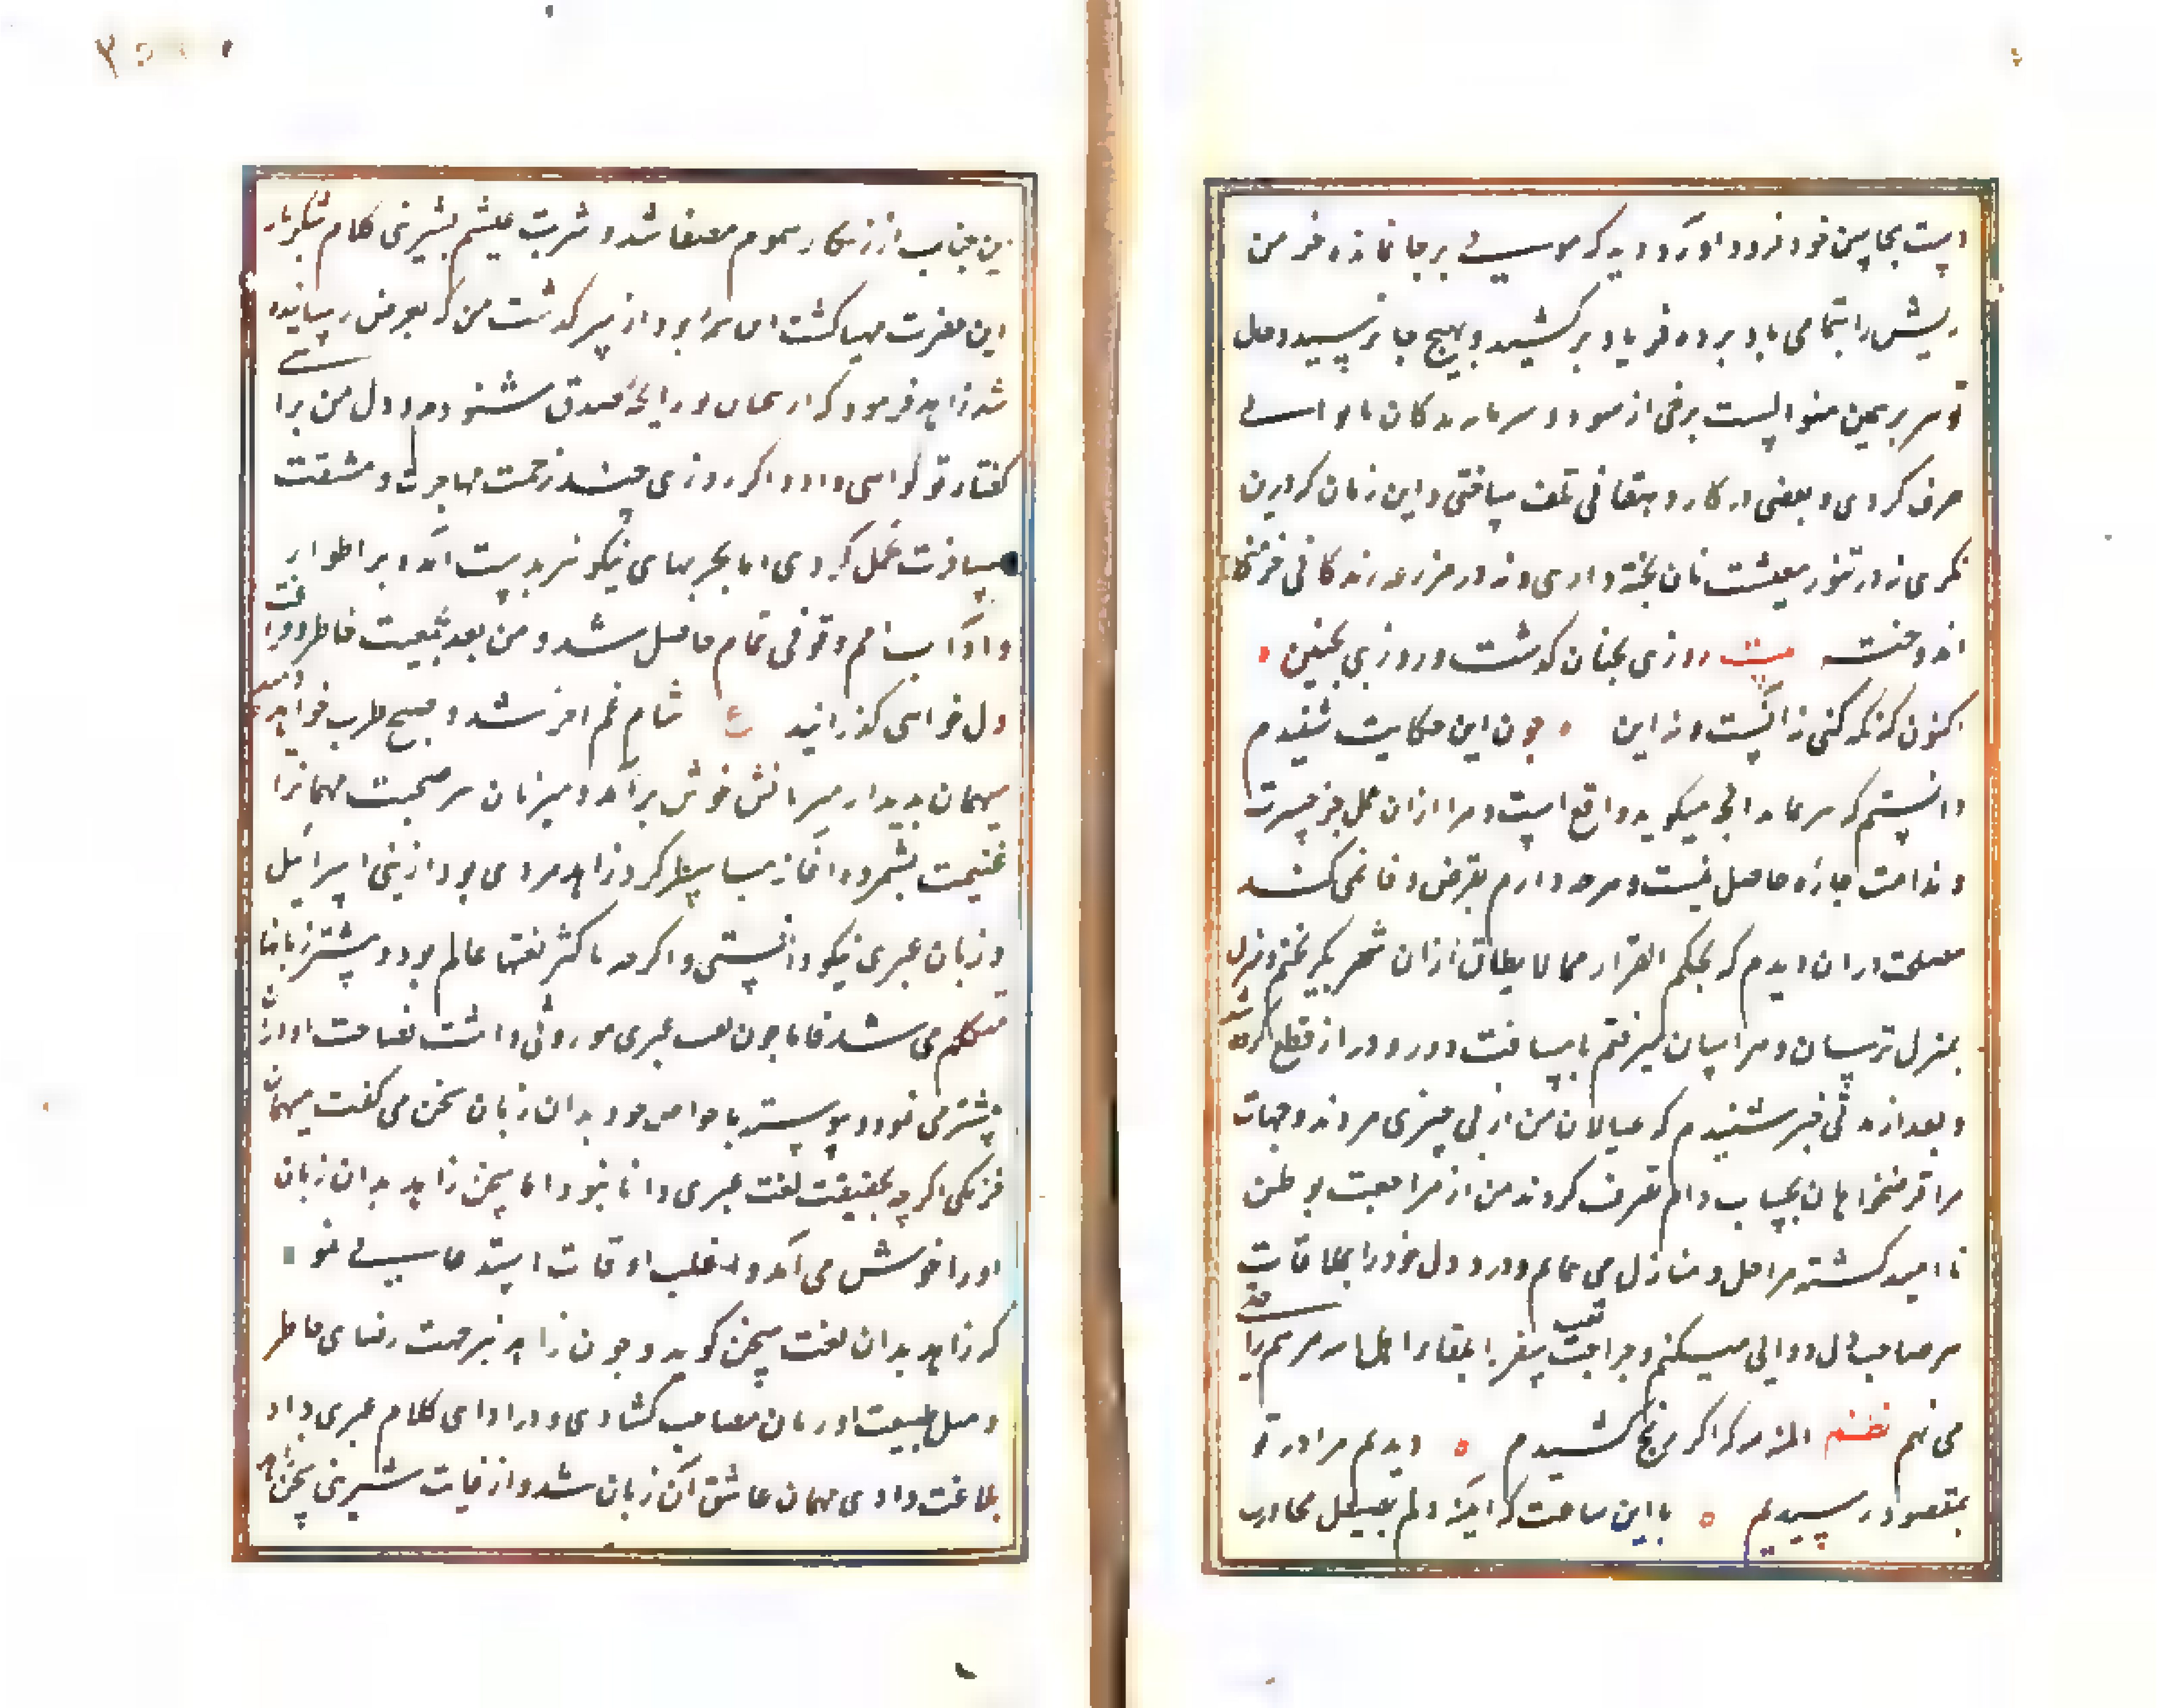 دست بمحاسن خود فرود آورد دید که موسئی بر جا نمانده خرمن
ریش را بتمامی باد برده فریاد برکشید و بهیچ جا نرسید و مثل
تو مر برهمین منوالست برخی از سود و سرمایه دکان نانوائی
صرف کردی و بعضی در کار دهقانی تلف ساختی و این زمان که درین
نکری نه در تنور معیشت نان پخته داری و نه در مزرعه زندکانی خرمنی
اندوخته بیت روزی بچنان کذشت و روزی بچنین
اکنون که نکه کنی نه آنست و نه این چون این حکایت شنیدم
دانستم که هر چه آنچه میکوید واقع است و مرا ازان عمل جز حسرت
و ندامت چاره حاصل نیست و هرچه دارم بقرض وفا نمی کند
مصلحت دران دیدم که بحکم الفرار مما لا یطاق ازان شهر بگریختم و منزل
بمنزل ترسان و هراسان میرفتم تا مسافت دور و دراز قطع کرده شد
و بعد از مدتی خبر شنیدم که عیالان من از بی چیزی مردند و جهات
مرا قرضخواهان بحساب وام تصرف کردند من از مراجعت بوطن
نا امید کشته مراحل و منازل می پیمایم و درد دل خود را بملاقات
هر صاحب دل دوائی میکنم و جراحت تعب سفر را بلقاء اهل الله مرهم راحتی
می نهم نظم المنة لله که اکر رنج کشیدم دیدیم مرادر تو
بمقصود رسیدیم با این ساعت که آینه دلم بصیقل محاورت
این جناب از زنکار هموم مصفا شد و شربت عیشم بشیرینی کلام شکربار
این حضرت مهیا کشت این ماجرا بود از سرکذشت من که بعرض رسانیده
شد زاهد فرمود که از سخنان تو رایحه صدق شنوده و دل من بر
کفتار تو کواهی داد و اکر روزی چند زحمت مهاجرت و مشقت
مسافرت تحمل کردی اما تجربهای نیکو نیز بدست آمد و بر اطوار
و آداب انام وقوفی تمام حاصل شد و من بعد بجمعیت خاطر و فراغت
دل خواهی کذرانید ع شام غم آخر شد و صبح طرب خواهد دمید
میهمان بدیدار میزبانش خوش برآمد و میزبان هم صحبت مهمانرا
غنیمت شمرده آغاز مباسطه کرد زاهد مردی بود از بنی اسرائیل
و زبان عبری نیکو دانستی و اکرچه باکثر لغتهاء عالم بود و بیشتر زبانها
متکلم می شد فاما چون لغت عبری موروثی داشت فصاحت او ازان
بیشتر می نمود و پیوسته با خواص خود بدان زبان سخن می کفت میهمان
فرنکی اکرچه بحقیقت لغت عبری دانا نبود اما سخن زاهد بدان زبان
او را خوش می آمد و اغلب اوقات استدعا میی نمو
که زاهد بدان لغت سخن کوید و چون زاهد نیز جهت رضای خاطر
و میل طبیعت او زبان مصاحبت کشادی و در ادای کلام عبری داد
بلاغت دادی مهمان عاشق آن زبان شد و از غایت شیرینی سخن زاهد